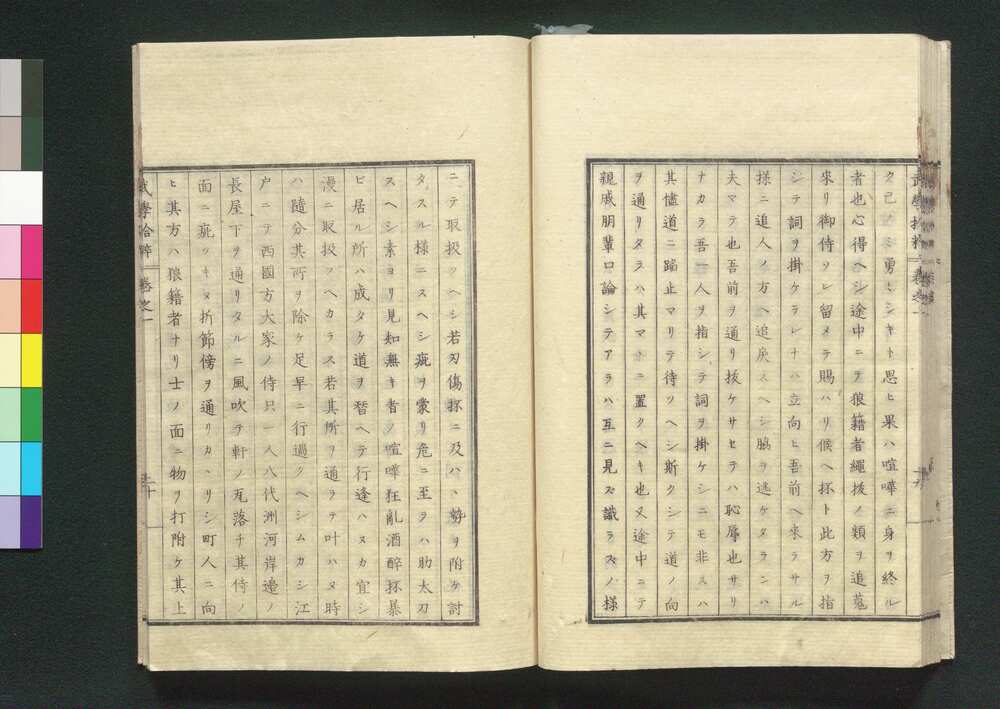 ク己ノミ勇ミシキト思ヒ果ハ喧嘩ニ身リ終ル
者也心得ヘシ途中ニテ狼藉者繩拔ノ類ヲ追蒐
來リ御侍ソレ留メテ賜ハリ候ヘ抔ト此方ヲ指
シテ詞ヲ掛ケラレナハ立向ヒ吾前ヘ來ラサル
様ニ追人ノ方ヘ追戾スヘシ脇ヲ逃ケタランハ
夫マテ也吾前ヲ通リ拔ケサセテハ恥辱也サリ
ナカラ吾一人ヲ指シテ詞ヲ掛ケシニモ非スハ
其儘道ニ踏止マリテ待ツヘシ斯クシテ道ノ向
ヲ通リタラハ其マヽニ置クヘキ也又途中ニテ
親戚朋輩口論シテアラハ互ニ見ズ識ラズノ様
ニテ取扱クヘシ若刃傷抔ニ及ハヽ勢ヲ附ケ討
タスル様ニスヘシ疵ヲ蒙リ危ニ至ラハ助太刀
スヘシ素ヨリ見知無キ者ノ喧嘩狂亂酒醉抔暴
ヒ居ル所ハ成タケ道ヲ替ヘテ行逢ハヌカ宜シ
漫ニ取扱フヘカラス若其所ヲ通ラテ叶ハヌ時
ハ隨分其所ヲ除ケ足早ニ行過クヘシムカシ江
戶ニテ西國方大家ノ侍只一人八代洲河岸邉ノ
長屋下ヲ通リタルニ風吹テ軒ノ瓦落チ其侍ノ
面ニ疵ツキヌ折節傍ヲ通リカヽリシ町人ニ向
ヒ其方ハ狼籍者ナリ士ノ面ニ物ヲ打附ケ其上
武學拾粹 卷之一